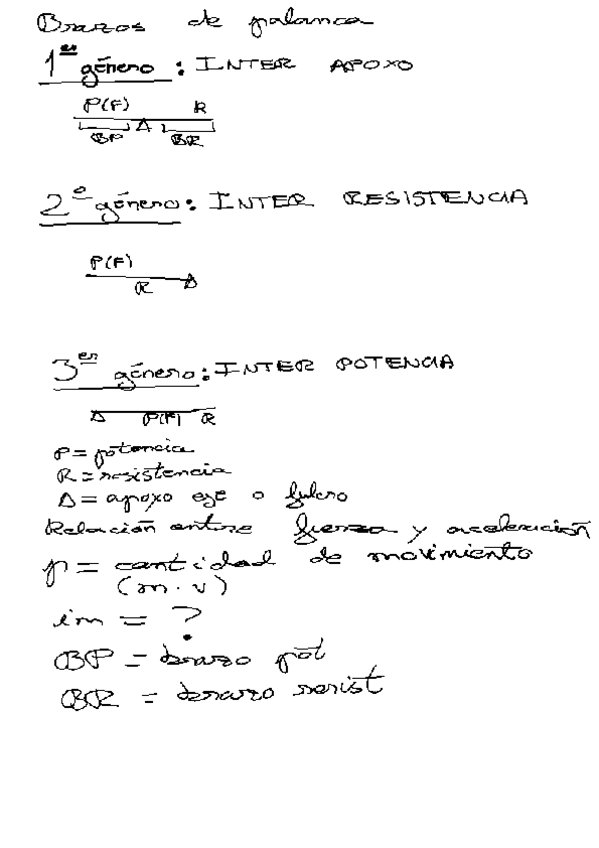 Brazos de palanca
1er género : INTER APOYO
P(F) R
Δ
BP BR
2º género: INTER RESISTENCIA
P(F)
R Δ
3er género: INTER POTENCIA
Δ P(F) R
P = potencia
R = resistencia
Δ = apoyo eje o fulcro
Relación entre fuerza y aceleración
p = cantidad de movimiento
(m · v)
im = ?
BP = brazo pot
BR = brazo resist